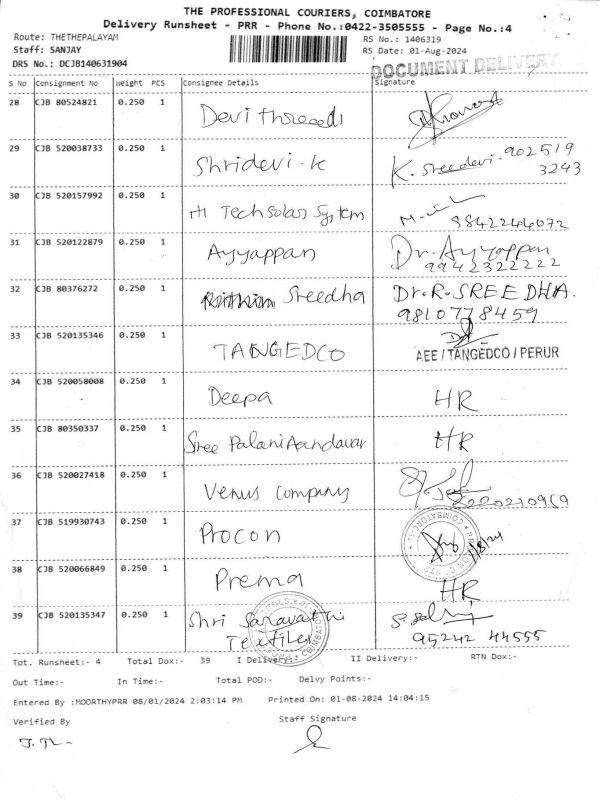 THE PROFESSIONAL COURIERS, COIMBATORE
Delivery Runsheet - PRR - Phone No.:0422-3505555 - Page No.:4
Route: THETHEPALAYAM RS No.: 1406319
Staff: SANJAY RS Date: 01-Aug-2024
DRS No.: DCJB140631904 DOCUMENT DELIVERY
S No Consignment No Weight PCS Consignee Details Signature
28 CJB 80524821 0.250 1 Devi
29 CJB 520038733 0.250 1 Shridevi.K K. Sreedevi - 902519
3243
30 CJB 520157992 0.250 1 Hi Tech Solar System
9842244072
31 CJB 520122879 0.250 1 Ayyappan Dr. Ayyappan
9942322222
32 CJB 80376272 0.250 1 Sreedha Dr.R.SREEDHA.
9810778459
33 CJB 520135346 0.250 1 TANGEDCO AEE / TANGEDCO / PERUR
34 CJB 520058008 0.250 1 Deepa HR
35 CJB 80350337 0.250 1 Sree Palani Aandavar HR
36 CJB 520027418 0.250 1 Venus company
8220210959
37 CJB 519930743 0.250 1 Procon 1/8/24
38 CJB 520066849 0.250 1 Prema HR
39 CJB 520135347 0.250 1 Shri Saravathi
Textiles 95242 44555
Tot. Runsheet:- 4 Total Dox:- 39 I Delivery:- II Delivery:- RTN Dox:-
Out Time:- In Time:- Total POD:- Delvy Points:-
Entered By :MOORTHYPRR 08/01/2024 2:03:14 PM Printed On: 01-08-2024 14:04:15
Verified By Staff Signature